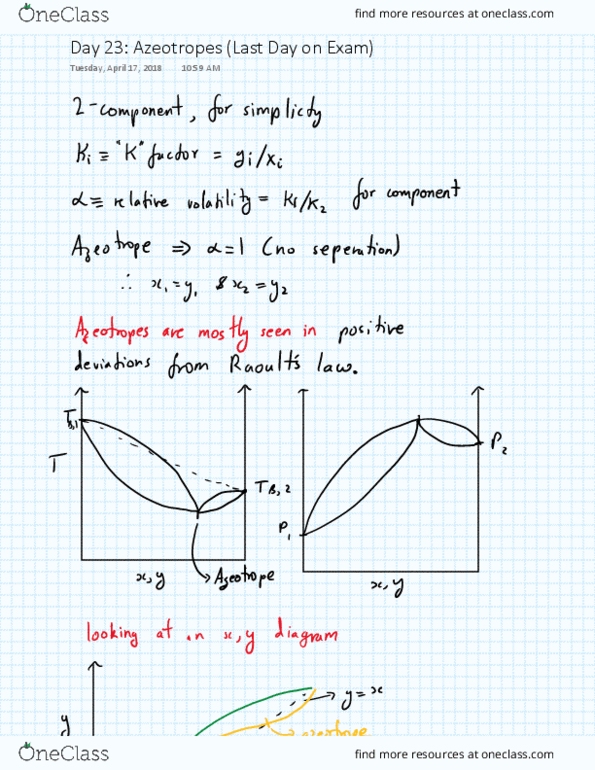 OneClass
find more resources at oneclass.com
Day 23: Azeotropes (Last Day on Exam)
Tuesday, April 17, 2018 10:59 AM
2-component, for simplicity
Ki ≡ "K" factor = yi/xi
α ≡ relative volatility = K1/K2 for component
Azeotrope ⇒ α=1 (no seperation)
∴ x1=y1 & x2=y2
Azeotropes are mostly seen in positive
deviations from Raoult's law.
TB,1
T
TB,2
x,y
Azeotrope
P2
P1
x,y
looking at an x,y diagram
y=x
y
azeotrope
OneClass
find more resources at oneclass.com